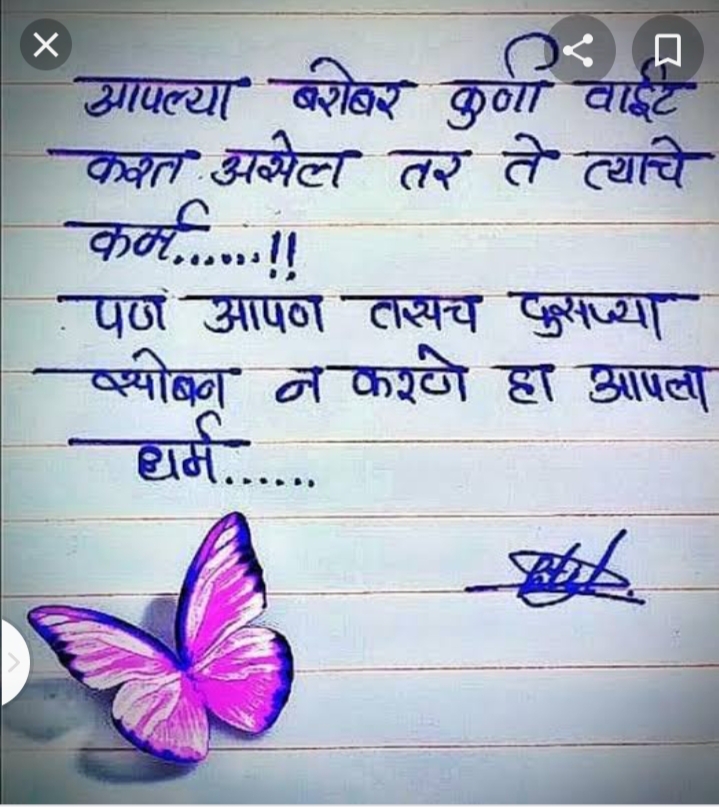 आपल्या बरोबर कुणी वाईट
करत असेल तर ते त्याचे
कर्म......!!
पण आपण तसच दुसऱ्या
सोबन न करणे हा आपला
धर्म......